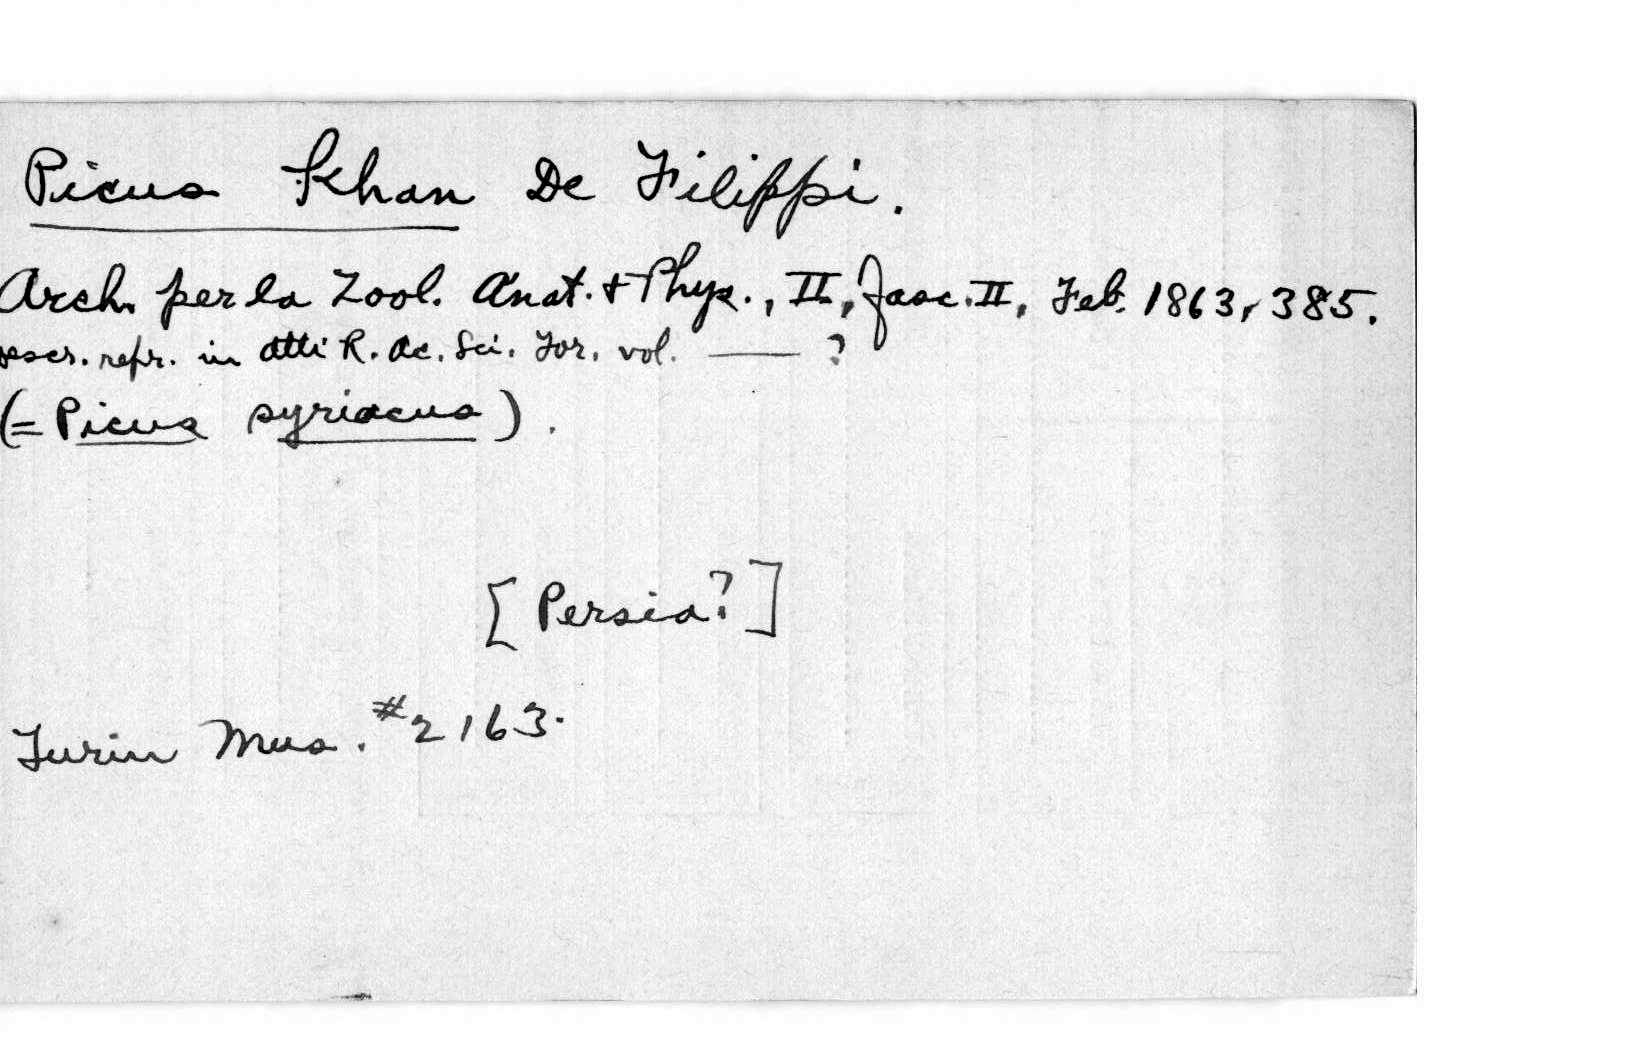 Picus Khan De Filippi.
Arch. per la Zool. Anat. + Phys., II, fasc. II, Feb. 1863, 385.
descr. repr. in Atti R. Ac. Sci. Tor. vol. —— ?
(= Picus syriacus).
[Persia?]
Turin Mus. #2163.